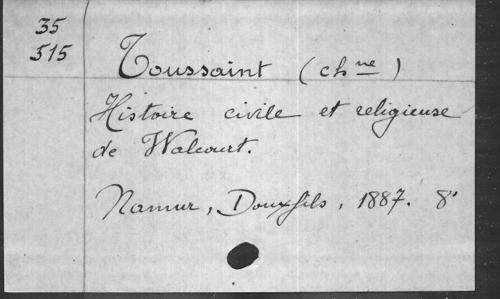 35
515
Toussaint (chne)
Histoire civile et religieuse
de Walcourt.
Namur, Douxfils, 1887. 8°